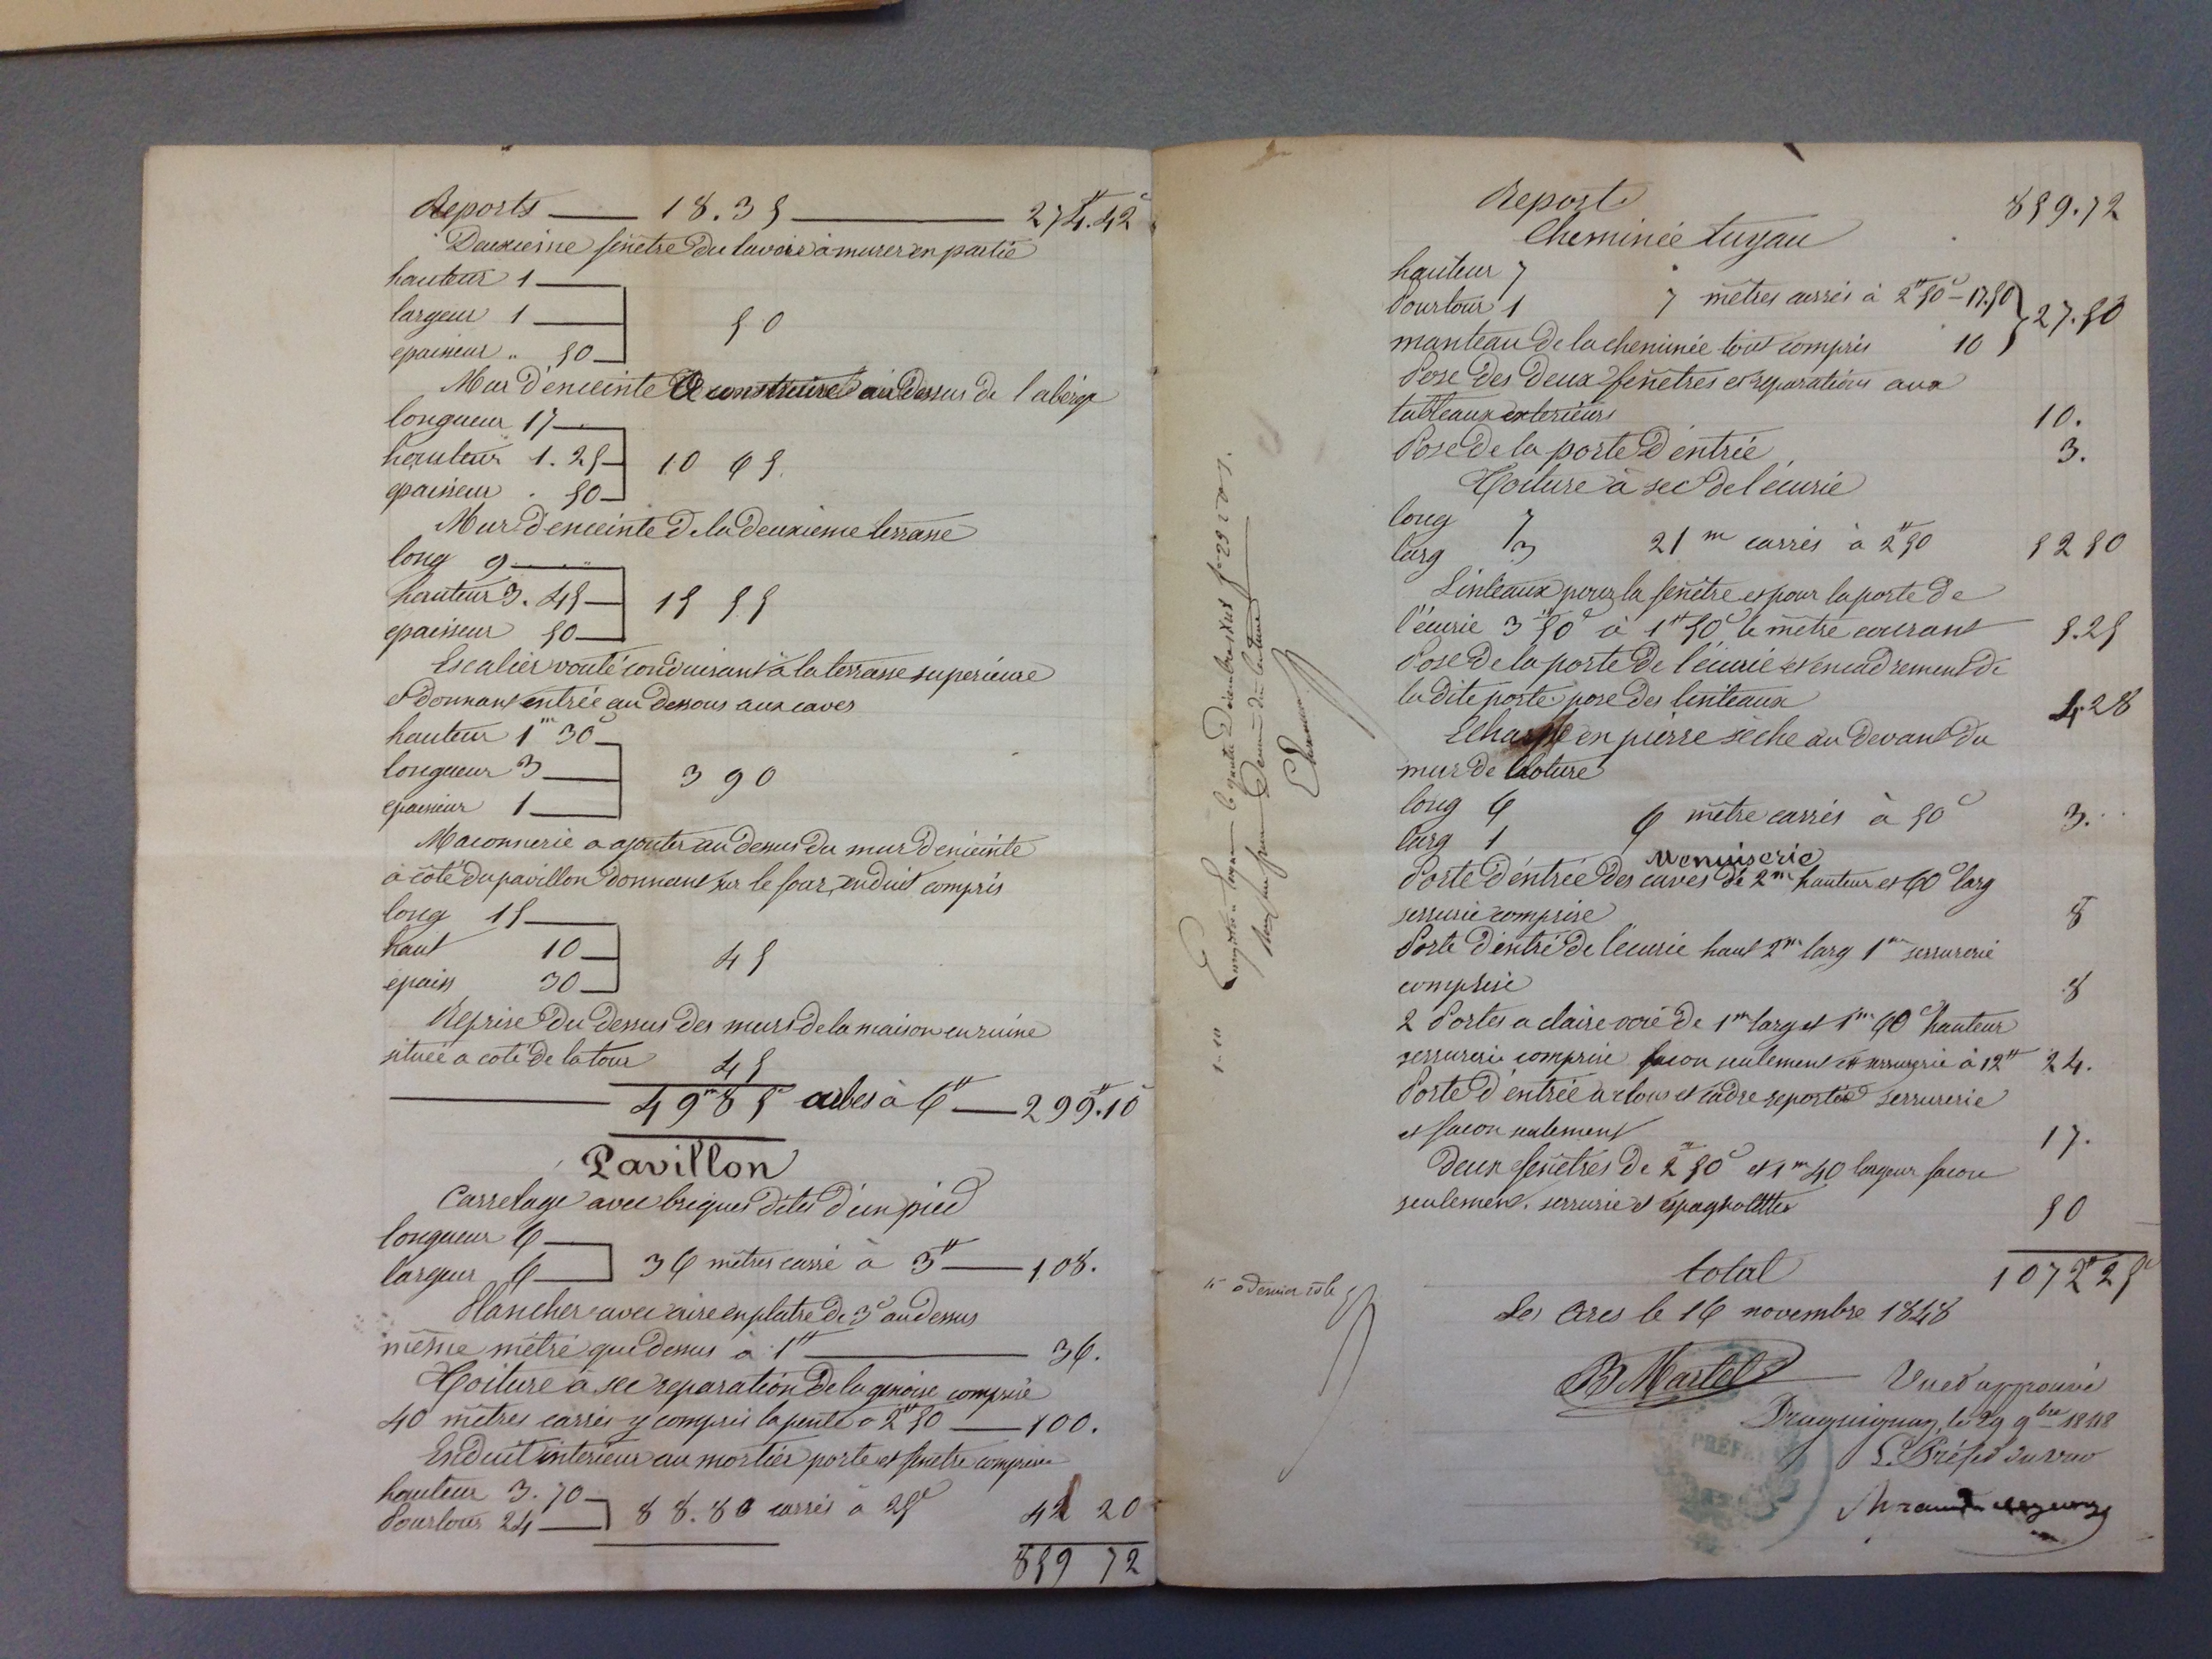 Reports — 18.35 — 274ᶠ.42ᶜ
Deuxieme fenêtre du lavoir à murer en partie
hauteur 1
largeur 1   50
epaisseur „ 50
Mur d'enceinte à construire au dessus de l
longueur 17
hauteur 1.25   10 65
epaisseur . 50
Mur d'enceinte de la deuxieme terrasse
long 9
hauteur 3.45   15 55
epaisseur 50
Escalier vouté conduisant à la terrasse superieure
et donnant entrée au dessous aux caves
hauteur 1ᵐ 30ᶜ
longueur 3   3 90
epaisseur 1
Maconnerie a ajouter au dessus du mur d'enceinte
à côté du pavillon donnant sur le four, enduit compris
long 15
haut 10   45
epaiss 30
Reprise du dessus des murs de la maison en ruine
située a coté de la tour   45
49ᵐ85ᶜ cubes à 6ᶠ — 299ᶠ.10
Pavillon
Carrelage avec briques dites d'un pied
longueur 6
largeur 6   36 mètres carré à 3ᶠ — 108.
Plancher avec aire en platre de 3ᶜ au dessus
même métré que dessus à 1ᶠ — 36.
Toiture à sec reparation de la genoise comprise
40 mètres carrés y compris la pente à 2ᶠ50 — 100.
Enduit interieur au mortier porte et fenetre comprise
hauteur 3.70
Pourtour 24   88.80 carrés à 25ᶜ   42 20
859 72
Report   859.72
Cheminée tuyau
hauteur 7
Pourtour 1   7 mètres carrés à 2ᶠ50ᶜ — 17.50
manteau de la cheminée tout compris   10   27.50
Pose des deux fenêtres et reparations aux
tableaux exterieurs   10.
Pose de la porte d'entrée   3.
Toiture à sec de l'écurie
long 7
larg 3   21ᵐ carrés à 2ᶠ50   52 50
Linteaux pour la fenêtre et pour la porte de
l'écurie 3ᵐ50ᶜ à 1ᶠ50ᶜ le mètre courant   5.25
Pose de la porte de l'écurie et encadrement de
la dite porte. pose des linteaux   4.28
en pierre sèche au devant du
mur de cloture
long 6
larg 1   6 mètre carrés à 50ᶜ   3.
Menuiserie
Porte d'entrée des caves de 2ᵐ hauteur et 60ᶜ larg
serrurie comprise   8
Porte d'entré de l'écurie haut 2ᵐ larg 1ᵐ serrurerie
comprise   8
2 Portes a claire voie de 1ᵐ larg et 1ᵐ 60ᶜ hauteur
serrurerie comprise facon seulement et serrurerie à 12ᶠ   24.
Porte d'entrée a clous et cadre reportée serrurerie
et facon seulement   17.
Deux fenêtres de 2ᵐ50ᶜ et 1ᵐ40 largeur facon
seulement. serrurie et espagnolettes   50
total   1072ᶠ25ᶜ
Les Arcs le 16 novembre 1848
B Martel
Vu et approuvé
Draguignan, le 29 9bre 1848
Le Préfet du Var